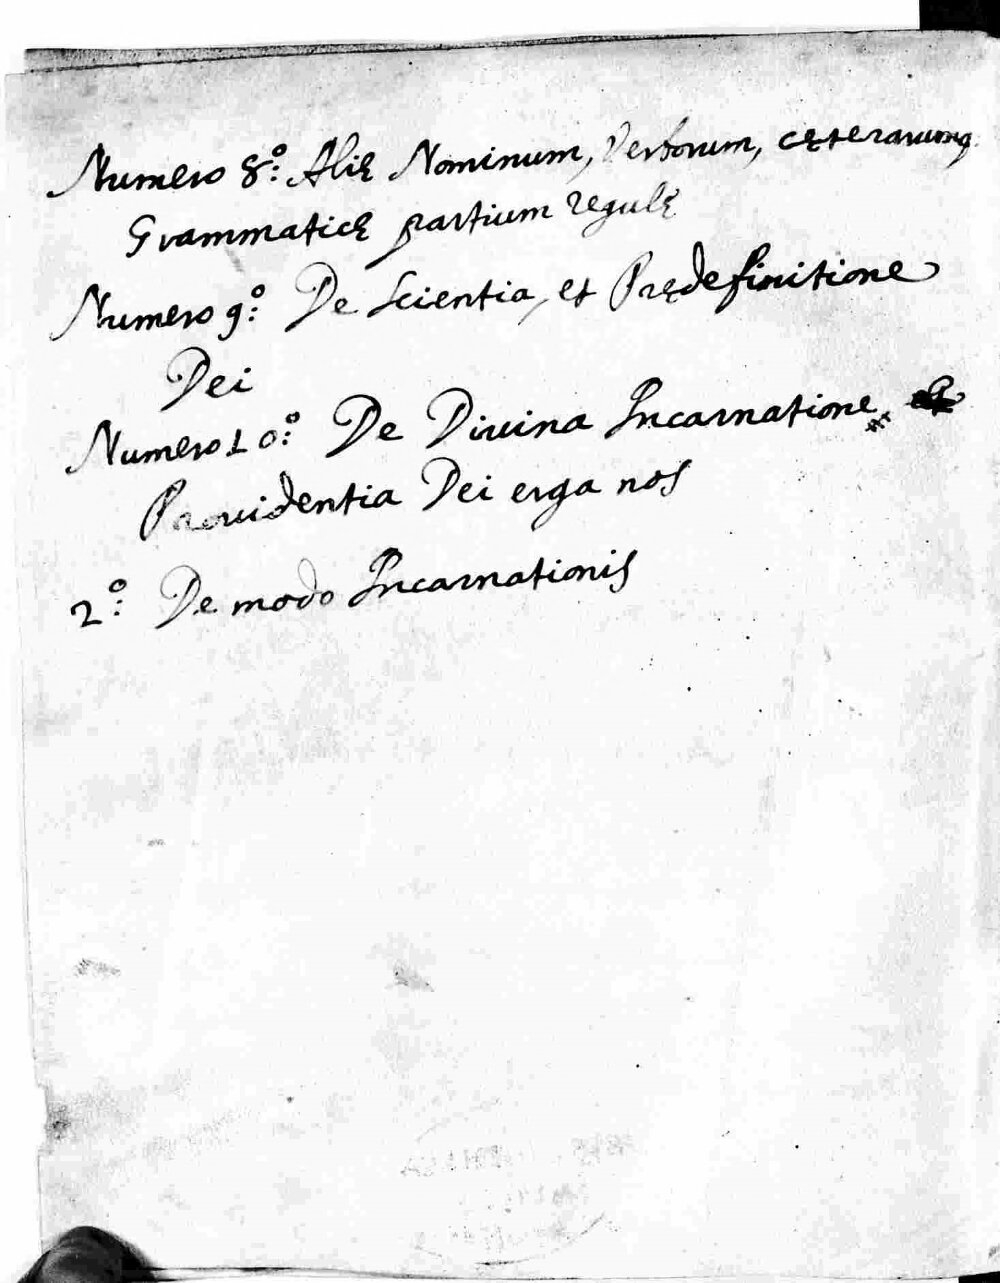 Numero 8.º Alię Nominum, Verborum, cęterarumq.
Grammaticę partium regulę
Numero 9.º De Scientia, et Prędefinitione
Dei
Numero 10.º De Divina Incarnatione, et
Providentia Dei erga nos
2.º De modo Incarnationis